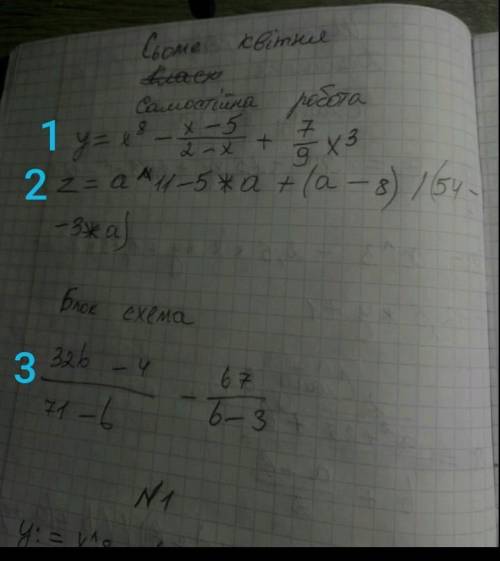 Сьоме квітня
Самостійна робота
1 y = x⁸ - (x-5)/(2-x) + 7/9 x³
2 z = a^11-5*a+(a-8)/(54-
-3*a)
Блок схема
3 (32b-4)/(71-b) - 67/(b-3)
N1
y:=